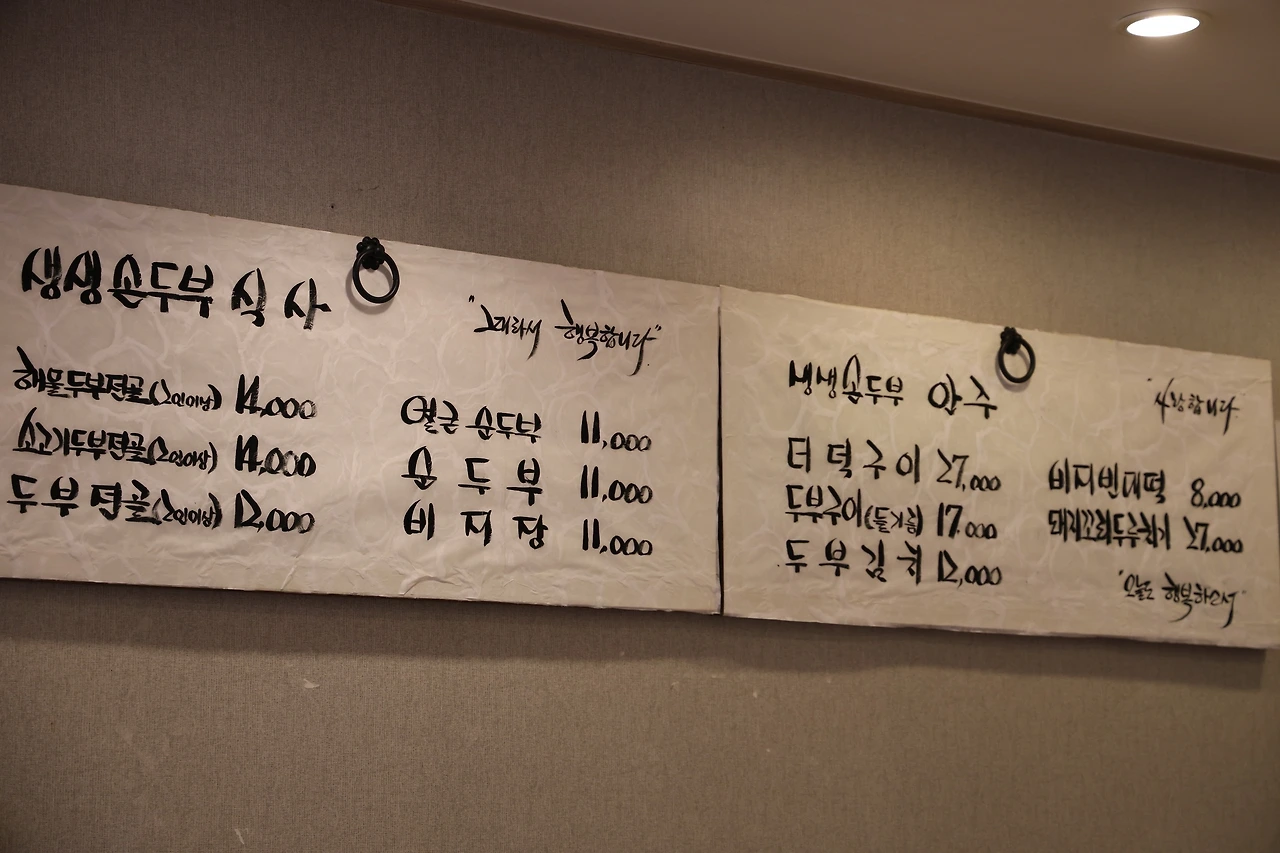 생생순두부 식사
"그래라서 행복합니다"
해물두부전골(2인이상) 14,000
소고기두부전골(2인이상) 14,000
두부전골(2인이상) 12,000
얼큰순두부 11,000
순두부 11,000
비지장 11,000
생생순두부 안주
"사랑합니다"
더덕구이 27,000
두부구이(들기름) 17,000
두부김치 12,000
비지빈대떡 8,000
27,000
"오늘도 행복하소서"